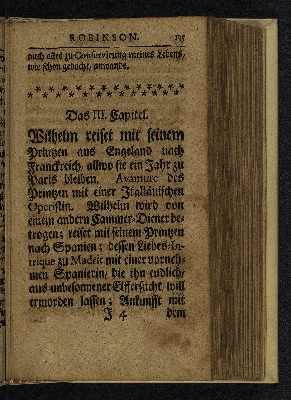 ROBINSON. 135
auch alles zu Conservirung meines Lebens,
wie schon gedacht, anwande.
Das III. Capitel.
Wilhelm reiset mit seinem
Printzen aus Engeland nach
Franckreich, allwo sie ein Jahr zu
Paris bleiben. Avanture des
Printzen mit einer Italiänischen
Operistin. Wilhelm wird von
einem andern Cammer-Diener be-
trogen; reiset mit seinem Printzen
nach Spanien; dessen Liebes-In-
trique zu Madrit mit einer vorneh-
men Spanierin, die ihn endlich,
aus unbesonnener Eiffersucht, will
ermorden lassen; Ankunfft mit
J 4 dem